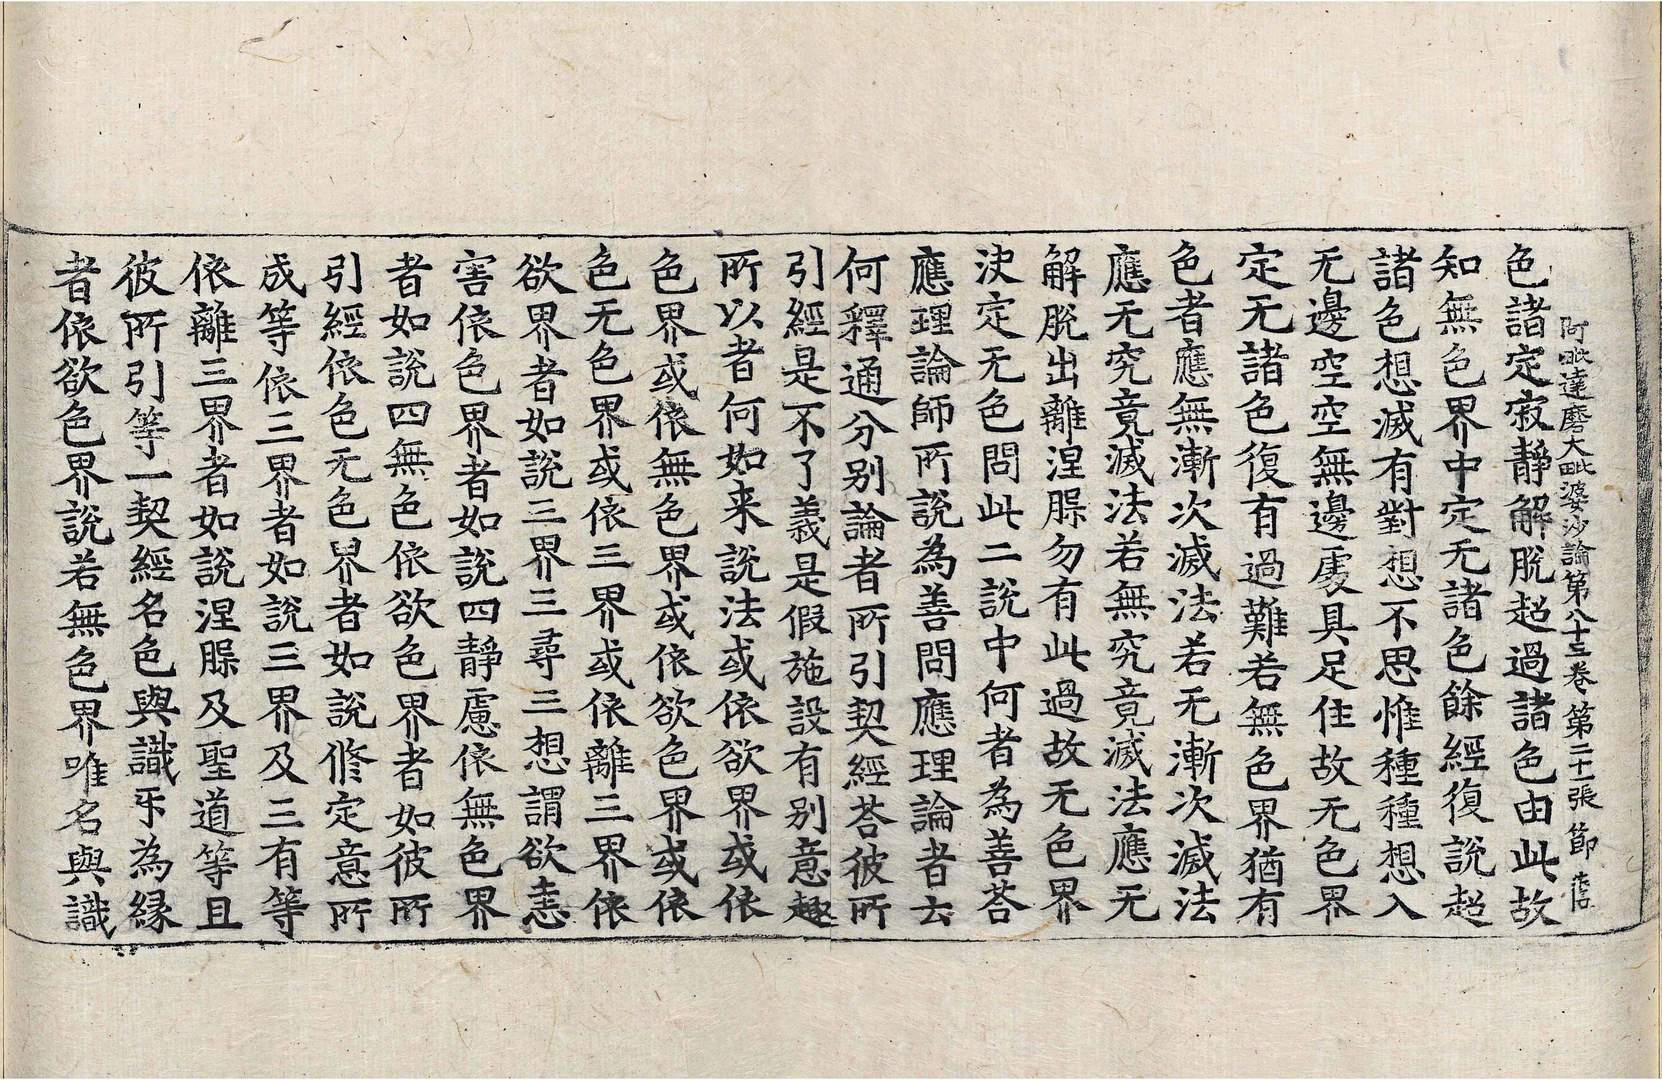 阿毗達磨大毗婆沙論第八十三卷 第二十張 節
色諸定寂静解脫超過諸色由此故
知無色界中定无諸色餘經復說超
諸色想滅有對想不思惟種種想入
无邊空空無邊處具足住故无色界
定无諸色復有過難若無色界猶有
色者應無漸次滅法若无漸次滅法
應无究竟滅法若無究竟滅法應无
解脫出離涅槃勿有此過故无色界
決定无色問此二說中何者為善荅
應理論師所說為善問應理論者云
何釋通分別論者所引契經荅彼所
引經是不了義是假施設有別意趣
所以者何如来說法或依欲界或依
色界或依無色界或依欲色界或依
色无色界或依三界或依離三界依
欲界者如說三界三尋三想謂欲恚
害依色界者如說四靜慮依無色界
者如說四無色依欲色界者如彼所
引經依色无色界者如說修定意所
成等依三界者如說三界及三有等
依離三界者如說涅槃及聖道等且
彼所引等一契經名色與識乐為緣
者依欲色界說若無色界唯名與識